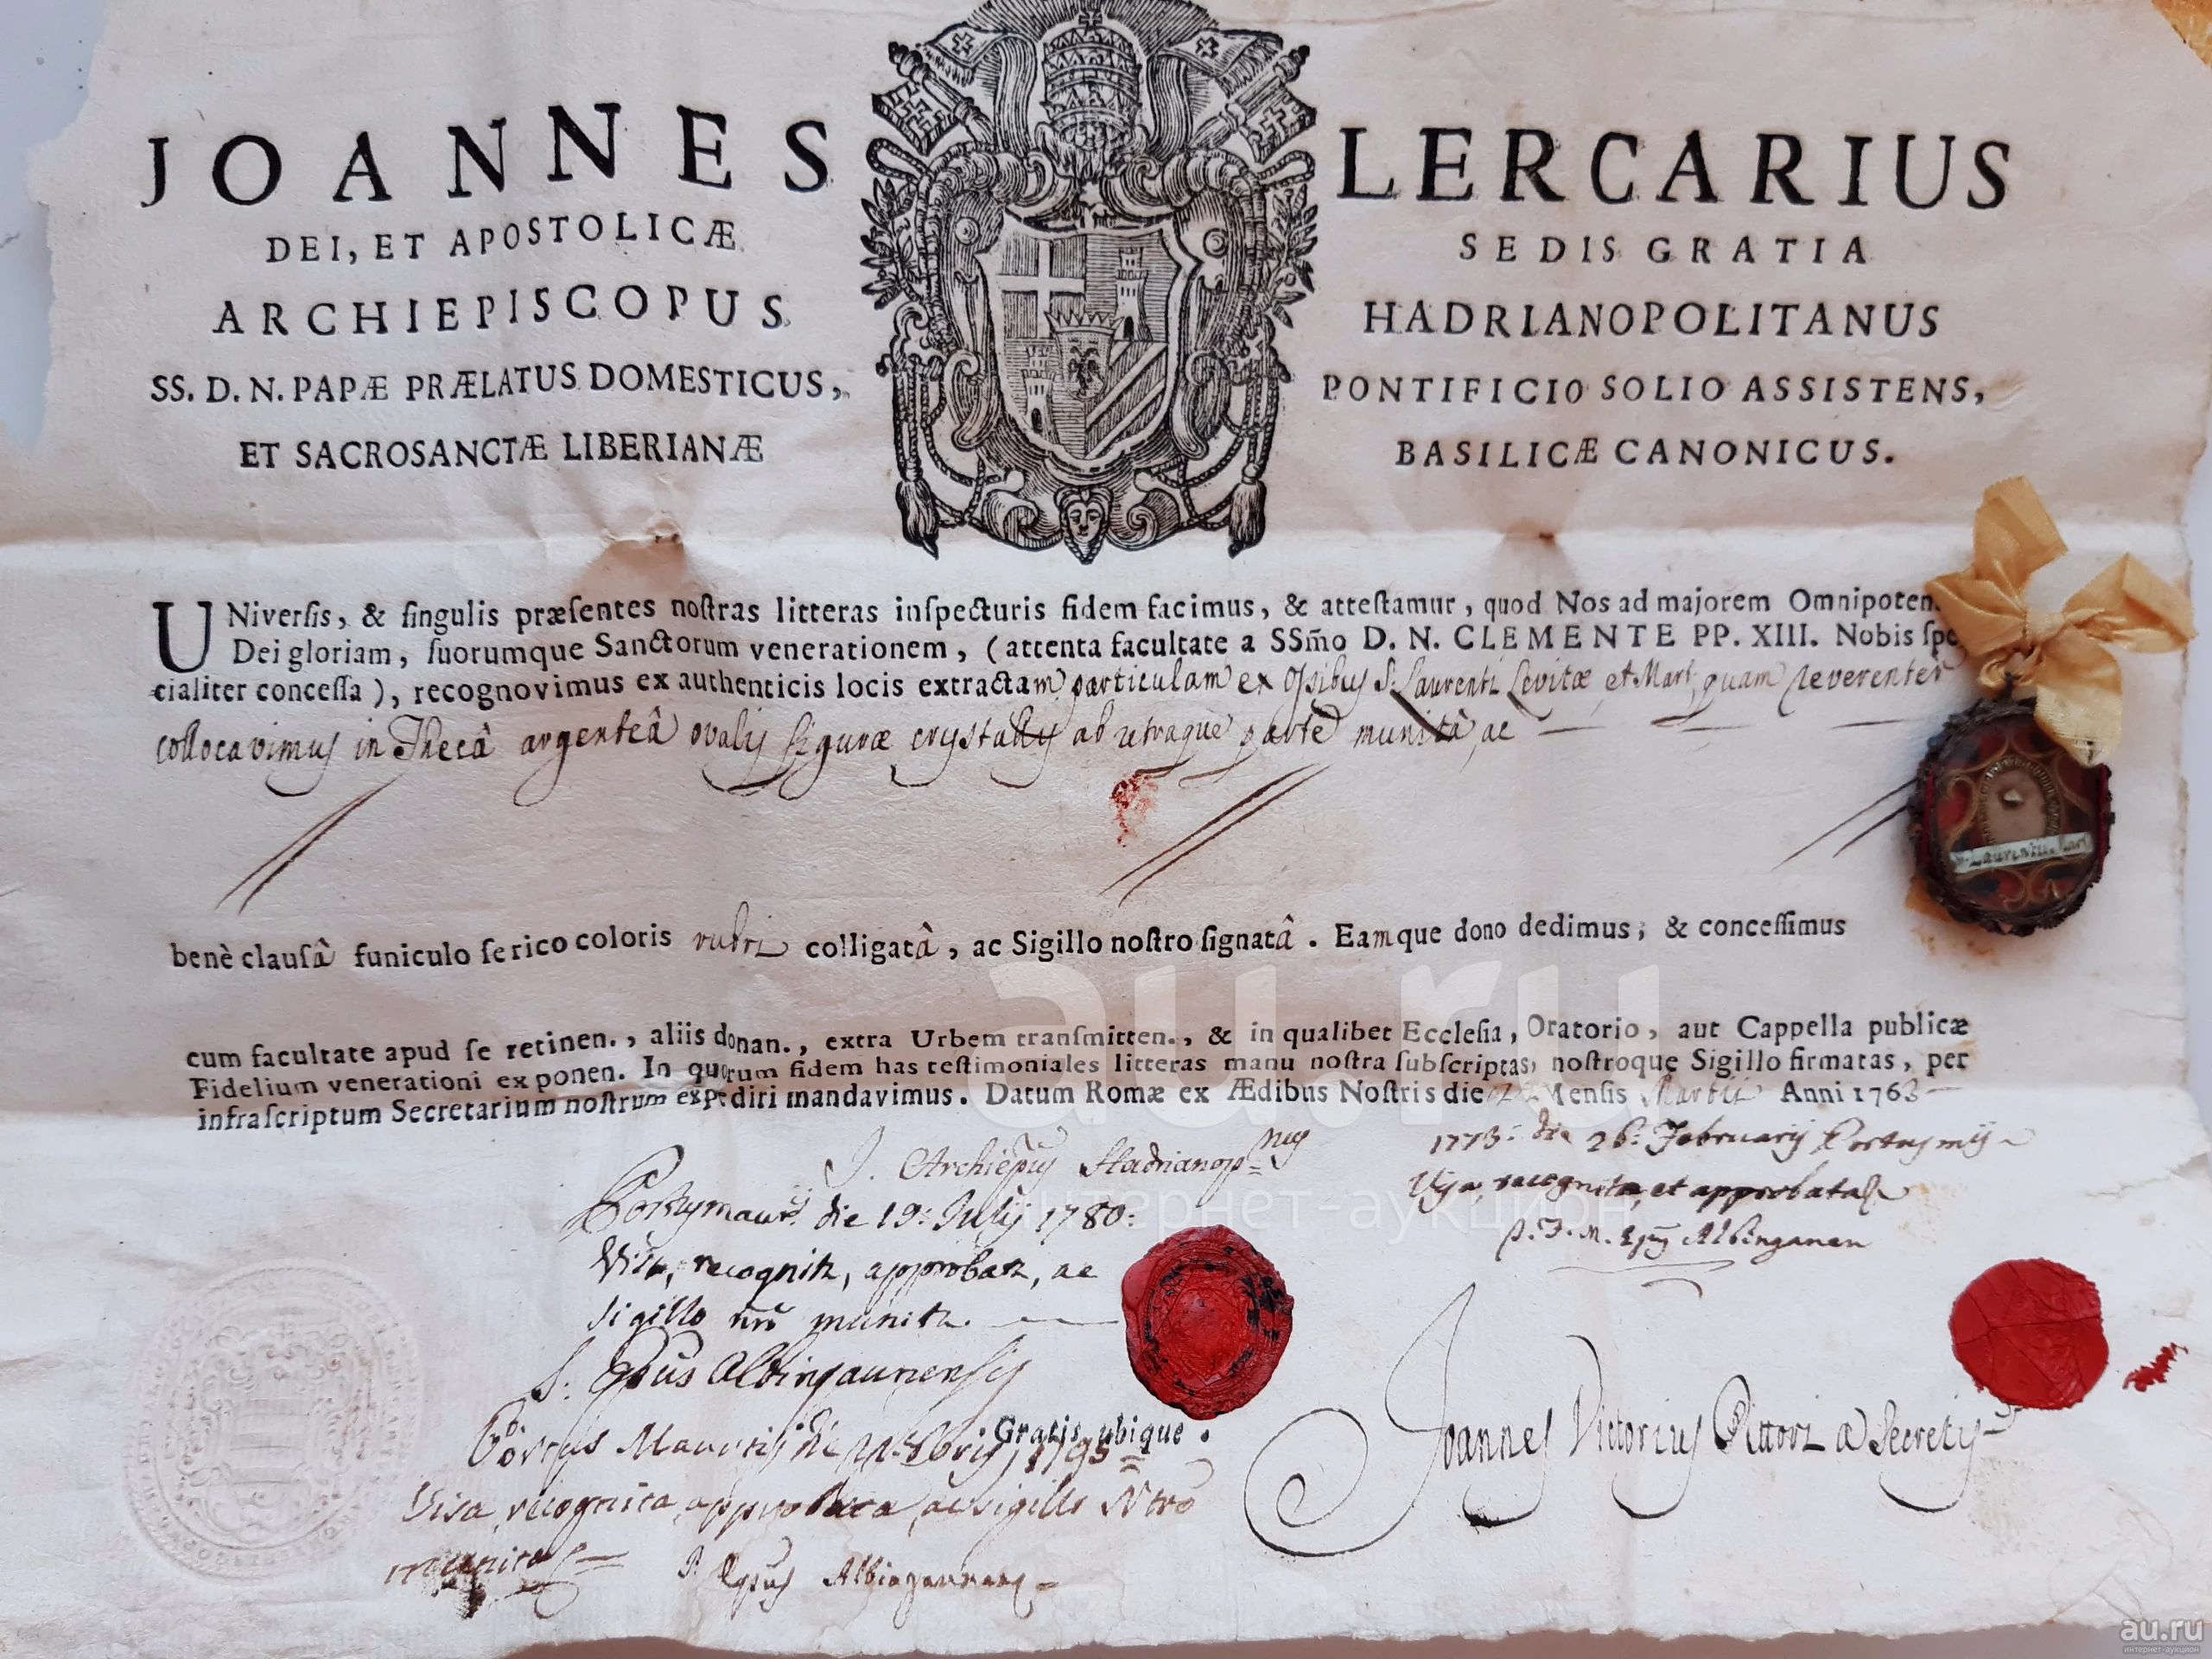 JOANNES LERCARIUS
DEI, ET APOSTOLICÆ SEDIS GRATIA
ARCHIEPISCOPUS HADRIANOPOLITANUS
SS. D. N. PAPÆ PRÆLATUS DOMESTICUS, PONTIFICIO SOLIO ASSISTENS,
ET SACROSANCTÆ LIBERIANÆ BASILICÆ CANONICUS.
UNiverſis, & ſingulis præſentes noſtras litteras inſpecturis fidem facimus, & atteſtamur, quod Nos ad majorem Omnipoten.
Dei gloriam, ſuorumque Sanctorum venerationem, (attenta facultate a SSm̃o D. N. CLEMENTE PP. XIII. Nobis ſpe
cialiter conceſſa), recognovimus ex authenticis locis extractam particulam ex Oſsibus S. Laurentii Levitæ et Mart. quam reverenter
collocavimus in Thecâ argenteâ ovalis figuræ crystallis ab utraque parte munitâ ac
S. Laurentii Mart
benè clauſâ funiculo ſerico coloris rubri colligatâ, ac Sigillo noſtro ſignatâ. Eamque dono dedimus, & conceſſimus
cum facultate apud ſe retinen., aliis donan., extra Urbem tranſmitten., & in qualibet Eccleſia, Oratorio, aut Cappella publicæ
Fidelium venerationi exponen. In quorum fidem has teſtimoniales litteras manu noſtra ſubſcriptas, noſtroque Sigillo firmatas, per
infraſcriptum Secretarium noſtrum expediri mandavimus. Datum Romæ ex Ædibus Noſtris die Menſis Martii Anni 1763
J. Archiepũs Hadrianopnus
1773: die 26: Februarij Portus mij
Visa, recognita, et approbata
F. M. Epũs Albinganen
Portusmaur. die 19: Julij 1780:
Visa, recognita, approbata, ac
sigillo nrõ munita.
S. Epũs Albingaunensis
Gratis ubique.
Portus Mauritij die 1795
Visa recognita, approbata, ac sigillo Ntro
munita
P. Epũs Albingaunens
Joannes Victorius Pittori a Secretis
au.ru
интернет-аукцион
au.ru
интернет-аукцион